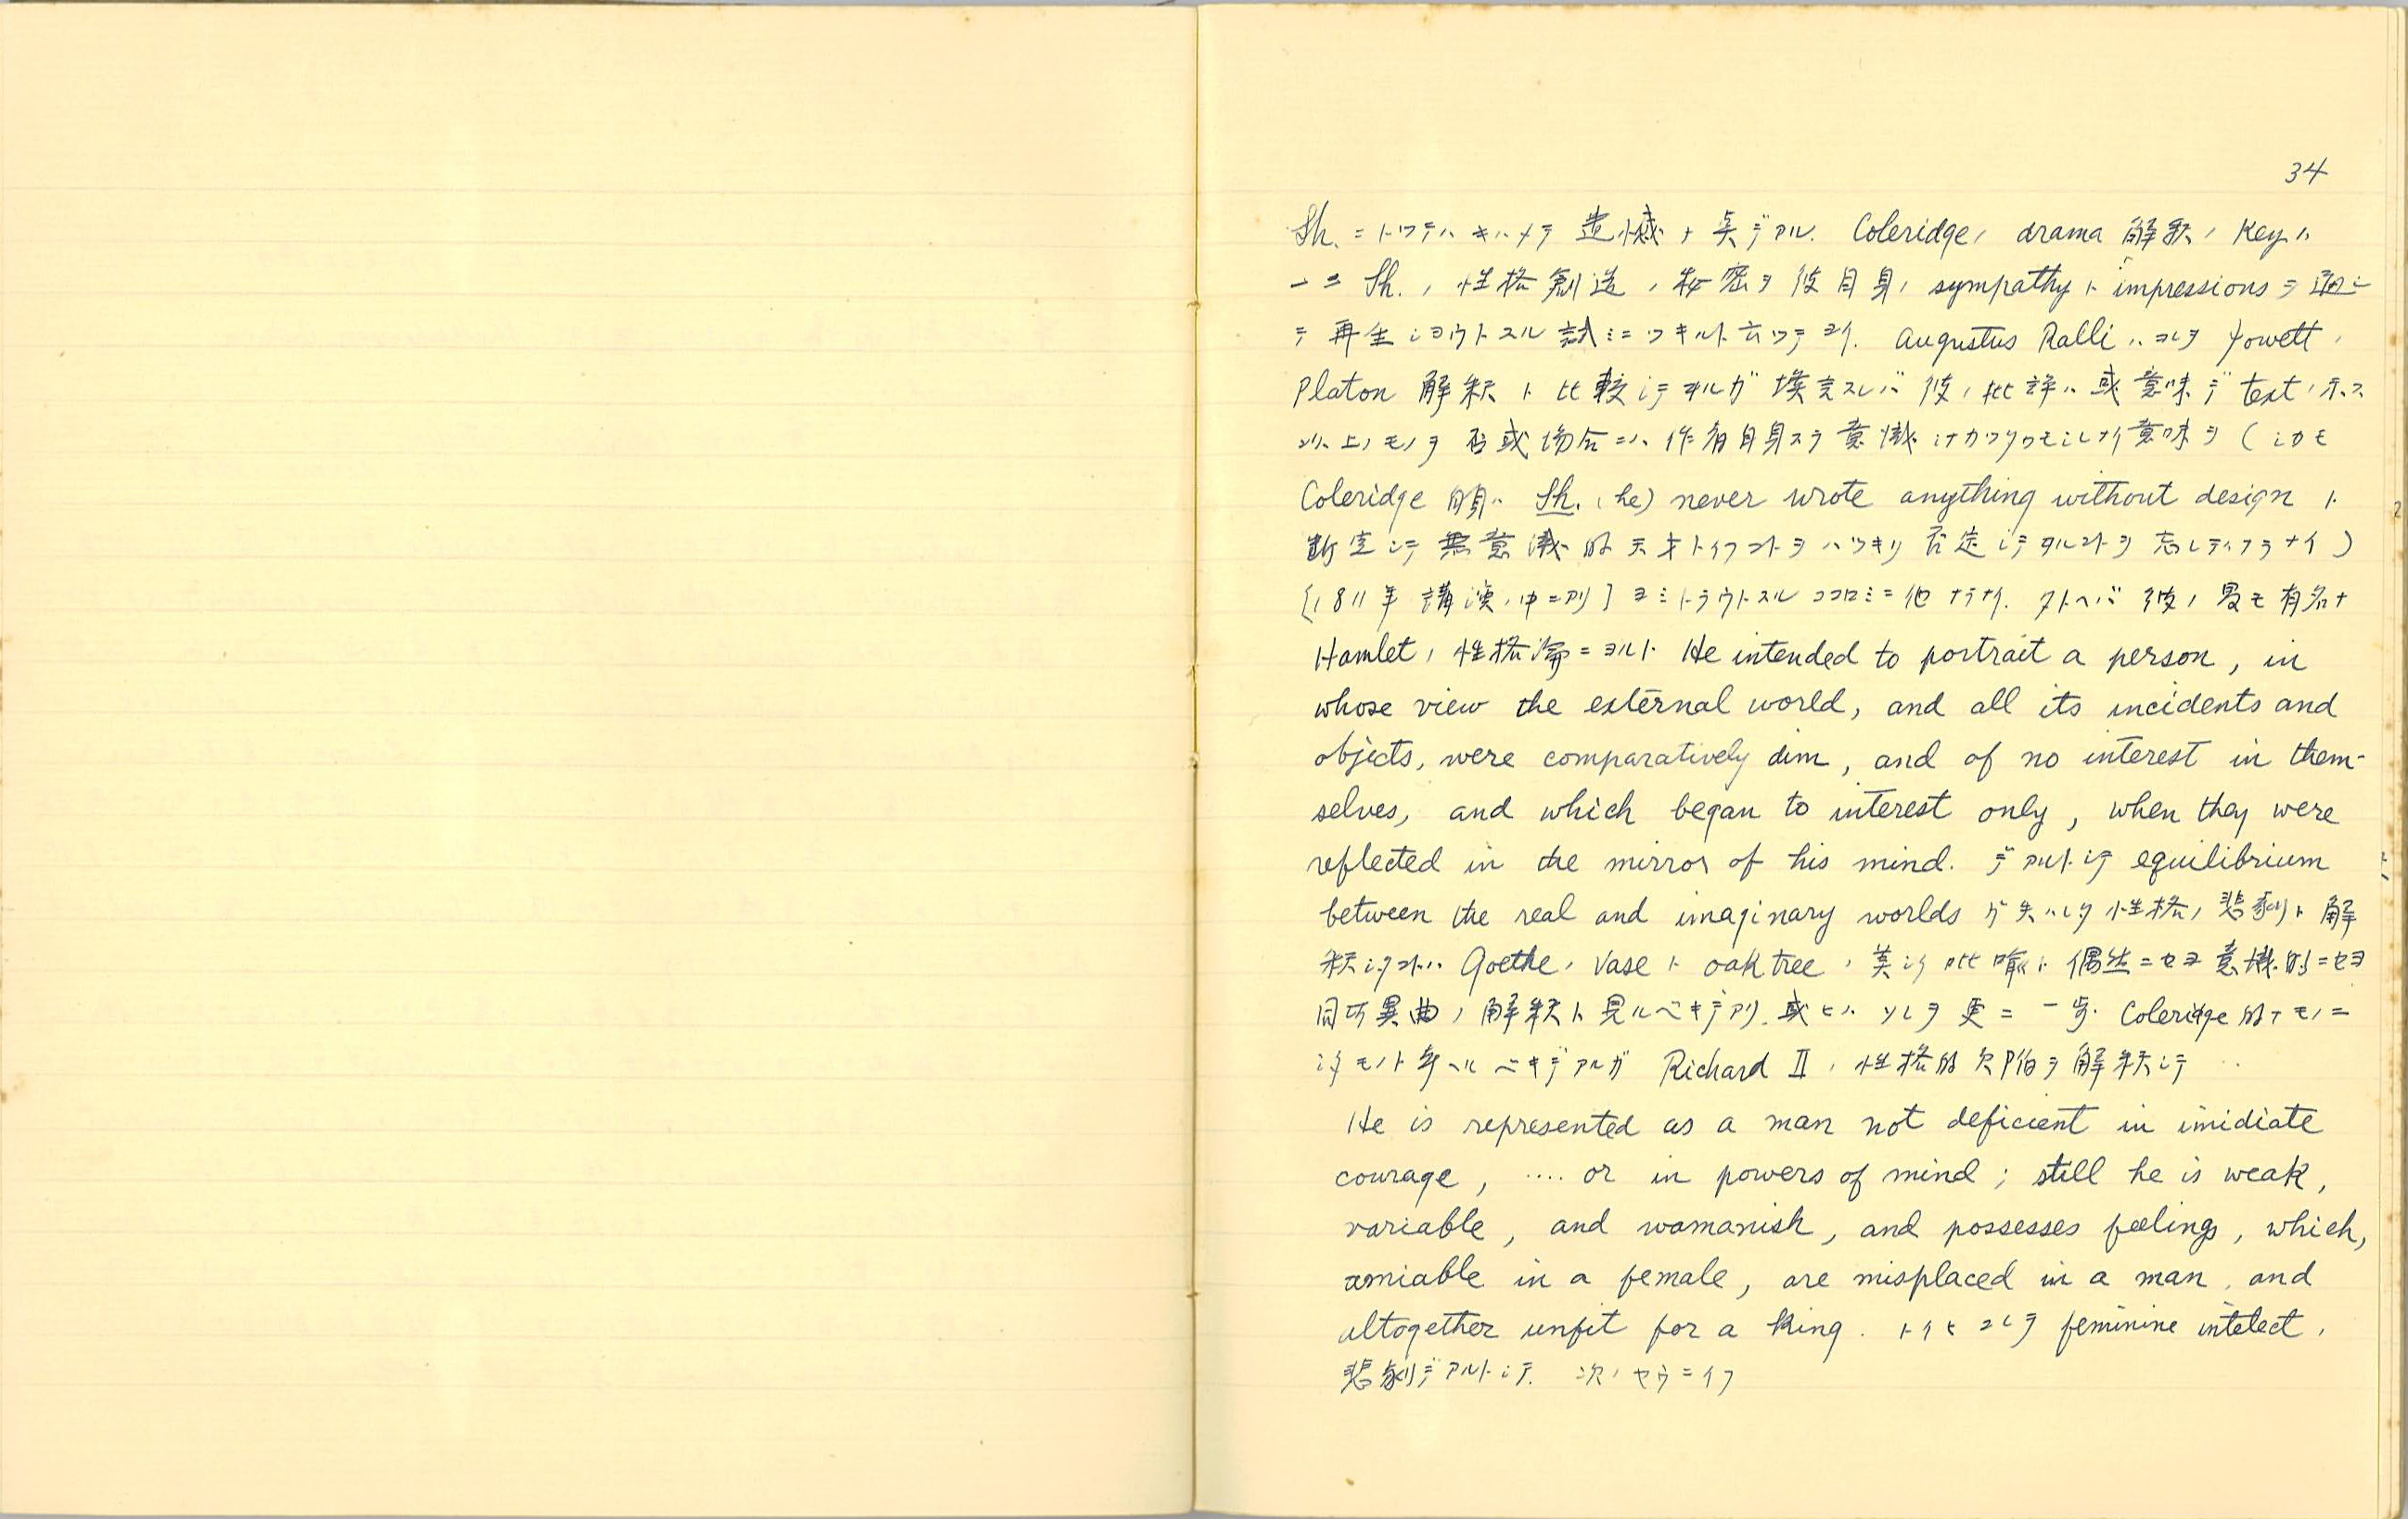 34
Sh. ニトツテハ キハメテ 遺憾ナ 点デアル. Coleridge ノ drama 解釈ノ Key ハ
一ニ Sh. ノ 性格創造ノ 秘密ヲ 彼自身ノ sympathy ト impressions ヲ 通シ
テ 再生シヨウトスル 試ミニ ツキルト云ツテヨイ. Augustus Ralli ハ コレヲ Jowett ノ
Platon 解釈ト 比較シテヰルガ 換言スレバ 彼ノ批評ハ 或意味デ text ノ示ス
以上ノモノヲ 否或場合ニハ 作者自身スラ 意識シナカツタカモシレナイ意味ヲ ( シカモ
Coleridge 自身ハ Sh. (he) never wrote anything without design ト
断定シテ 無意識的天才トイフコトヲ ハツキリ 否定シテヰルコトヲ 忘レテハナラナイ )
[1811年 講演ノ中ニアリ] ヨミトラウトスル ココロミニ他ナラナイ. タトヘバ 彼ノ 最モ有名ナ
Hamlet ノ 性格論ニヨルト He intended to portrait a person, in
whose view the external world, and all its incidents and
objects, were comparatively dim, and of no interest in them-
selves, and which began to interest only, when they were
reflected in the mirror of his mind. デアルトシテ equilibrium
between the real and imaginary worlds ガ 失ハレタ 性格ノ 悲劇ト 解
釈シタコトハ Goethe ノ Vase ト oak tree ノ 美シイ 比喩ト 偶然ニセヨ 意識的ニセヨ
同巧異曲ノ 解釈ト見ルベキデアリ. 或ヒハ ソレヲ 更ニ 一歩 Coleridge 的ナモノニ
シタモノト 考ヘルベキデアルガ Richard II ノ 性格的欠陥ヲ 解釈シテ
He is represented as a man not deficient in imidiate
courage, .... or in powers of mind ; still he is weak,
variable, and womanish, and possesses feelings, which,
amiable in a female, are misplaced in a man, and
altogether unfit for a King. トイヒ コレヲ feminine intelect ノ
悲劇デアルトシテ. 次ノヤウニイフ